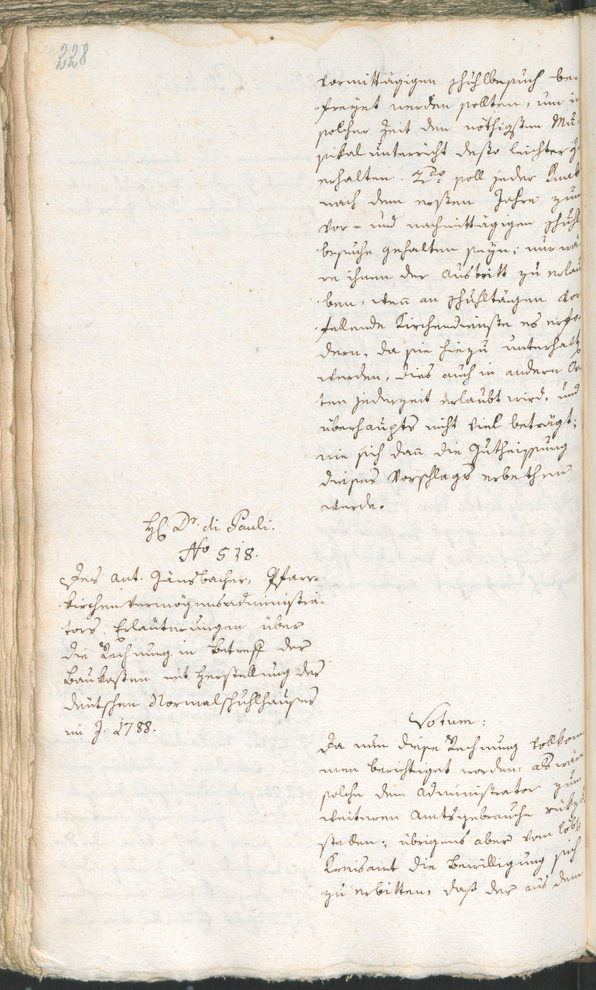 228
vormittägigen Schuhlbesuch be-
freyet werden sollten, um in
solcher Zeit den nöthigsten Mu-
sikal unterricht desto leichter zu
erhalten. 2do soll jeder Knab
nach dem ersten Jahre zum
vor- und nachmittägigen Schuhl
besuche gehalten seyn; nur wä-
re ihnen der Austritt zu erlau
ben, wen an Schuhltägen vor
fallende Kirchendienste es erfo
dern, da sie hiezu unterhalten
werden, dies auch in andern Or
ten jederzeit erlaubt wird, und
überhaupts nicht viel beträgt;
wie sich dan die Gutheissung
dieses Vorschlags erbethen
werde.
H. Dr. di Pauli.
No 518.
Des Ant. Gänsbacher, Pfarr-
kirchen vermögensadministra-
tors Erläuterungen über
die Rechnung in Betreff der
Baukosten mit Herstellung des
deutschen Normalschuhlhauses
im J. 1788.
Votum:
Da nun diese Rechnung vollkom
men berichtiget worden: als wäre
solche dem Administrator zum
weiteren Amtsgebrauche rükzu
stellen; übrigens aber vom löbl.
Kreisamt die Bewilligung sich
zu erbitten, daß der aus dem